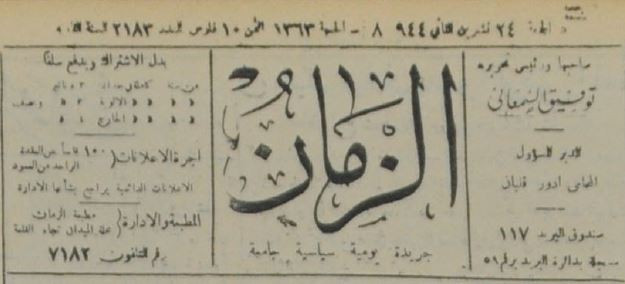 الجمعة ٢٤ تشرين الثاني ٩٤٤ ٨ ذي الحجة ١٣٦٣ الثمن ١٠ فلوس العدد ٢١٨٣ السنة
صاحبها ورئيس تحريره
توفيق السمعاني
المدير المسؤول
المحامي ادور قليان
صندوق البريد ١١٧
مسجلة بدائرة البريد برقم ٥٩
الزمان
جريدة يومية سياسية جامعة
بدل الاشتراك ويدفع سلفا
اجرة الاعلانات ( ١٠٠
الواحد من العمود
الاعلانات الدائمية يراجع بشأنها الادارة
المطبعة والادارة ( مطبعة الزمان
محلة الميدان تجاه القلعة
رقم التلفون ٧١٨٢